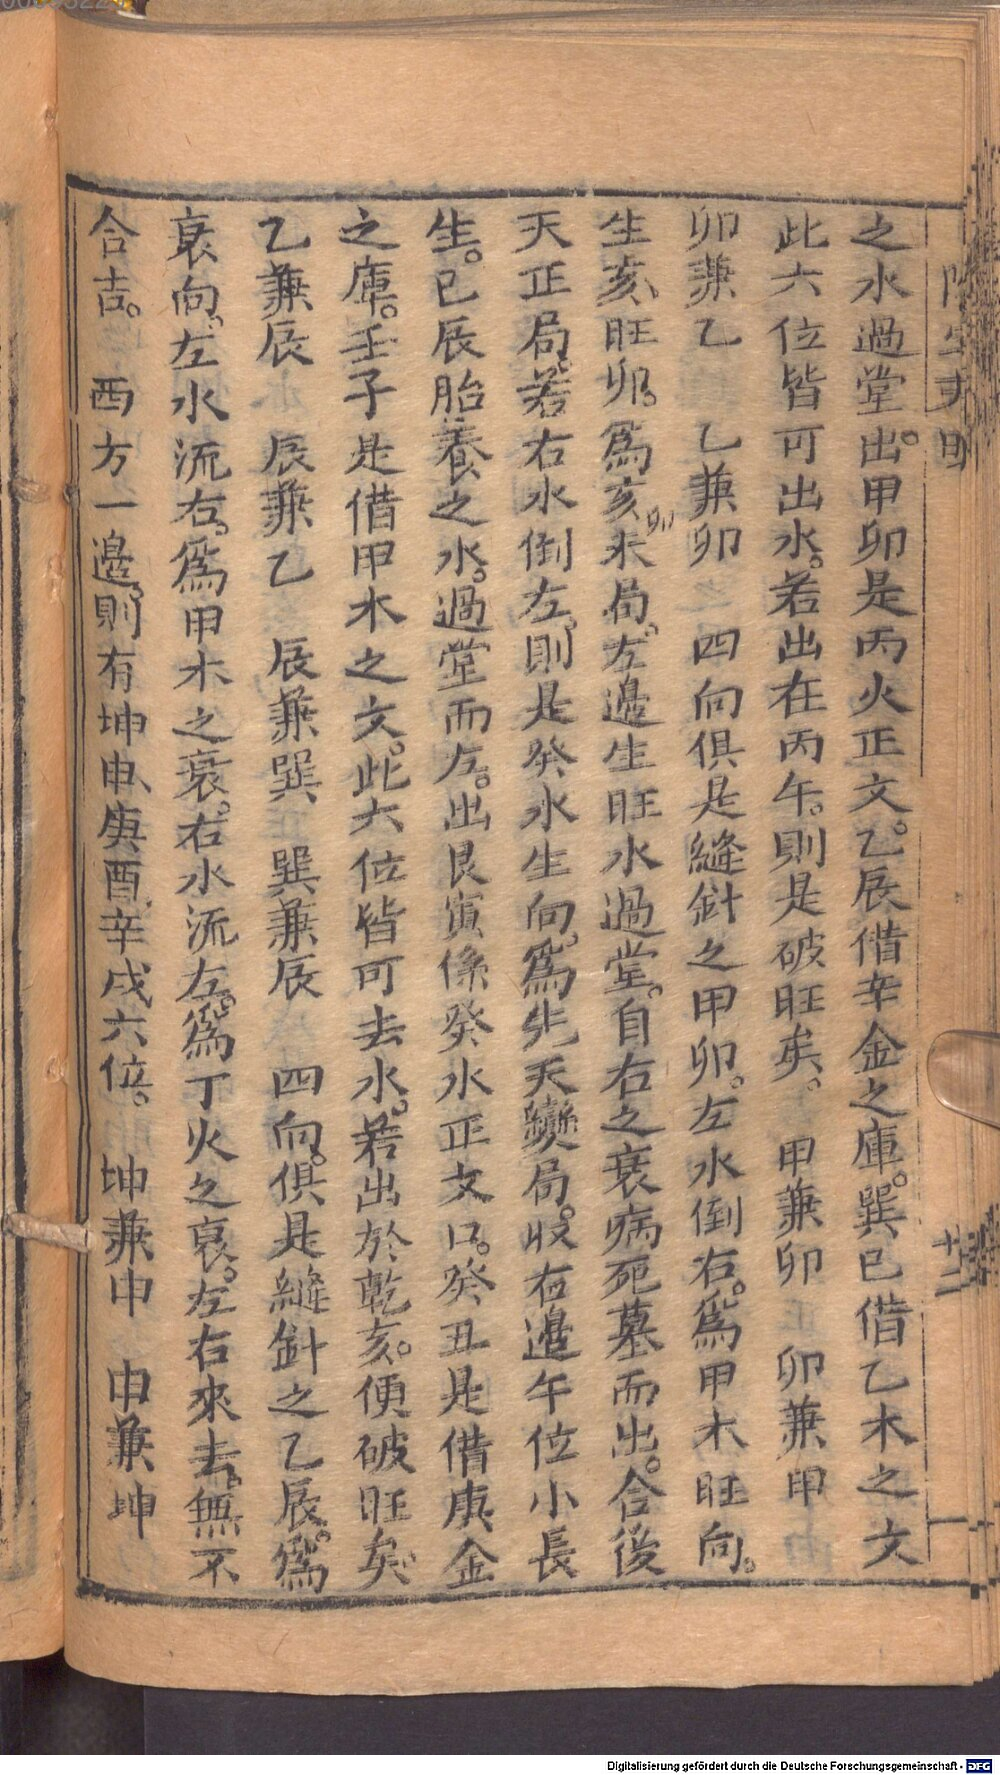 之水過堂出。甲卯是丙火正文。乙辰借辛金之庫。巽巳借乙木之文
此六位皆可出水。若出在丙午。則是破旺矣。 甲兼卯 卯兼甲
卯兼乙 乙兼卯 四向俱是縫針之甲卯。左水倒右。爲甲木旺向。
生亥、旺卯。爲亥卯未局。左邊生旺水過堂。自右之衰病死墓而出。合後
天正局。若右水倒左。則是癸水生向。爲先天變局。收右邊午位小長
生。巳辰胎養之水。過堂而左。出艮寅係癸水正文口。癸丑是借庚金
之庫。壬子是借甲木之文。此六位皆可去水。若出於乾亥。便破旺矣。
乙兼辰 辰兼乙 辰兼巽 巽兼辰 四向。俱是縫針之乙辰。爲
衰向。左水流右。爲甲木之衰。右水流左。爲丁火之衰。左右來去。無不
合吉。 西方一邊。則有坤申、庚酉辛戌六位。 坤兼申 申兼坤
十二
Digitalisierung gefördert durch die Deutsche Forschungsgemeinschaft - DFG